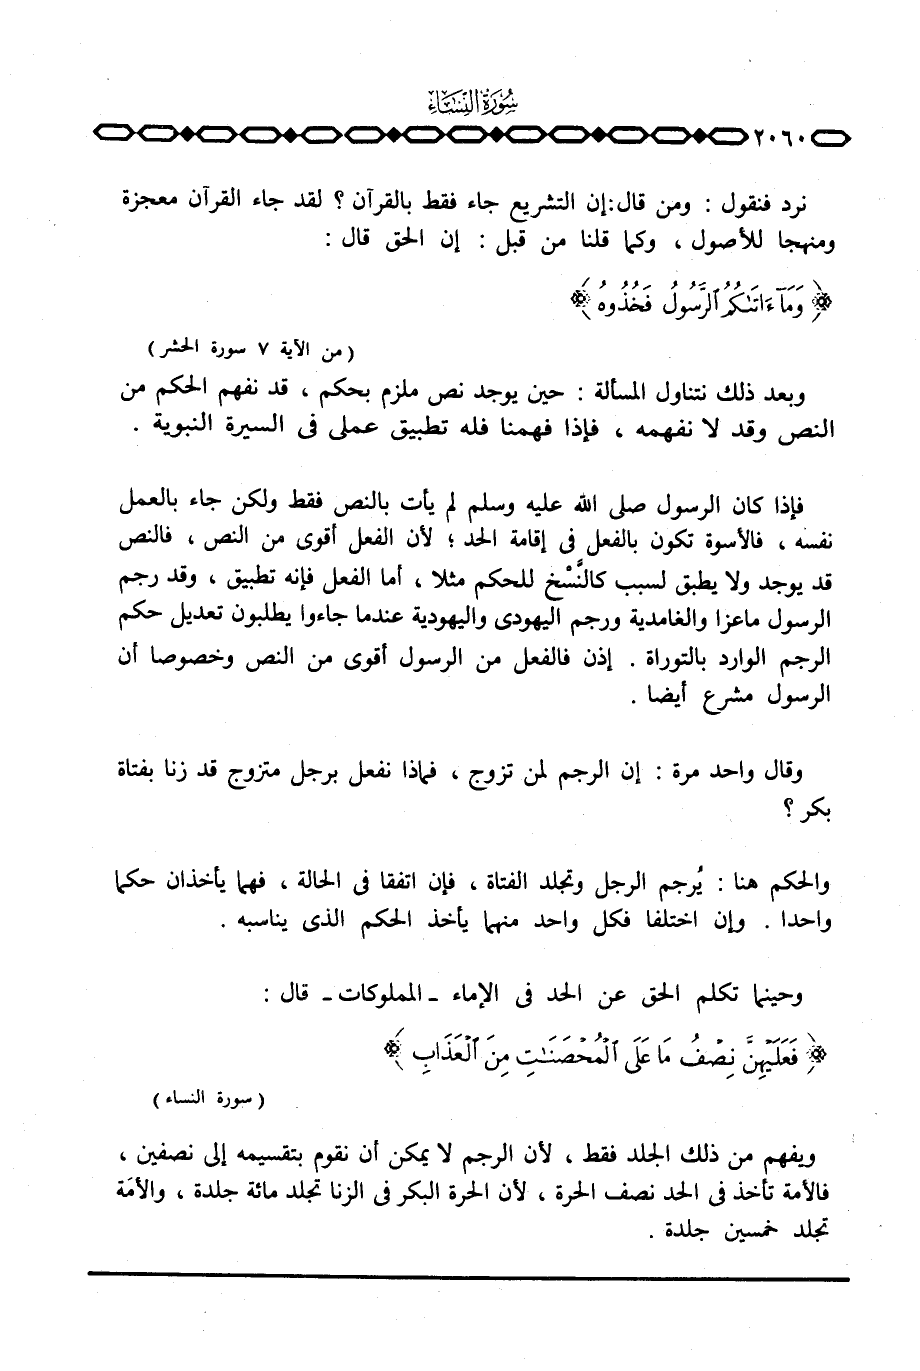 سُورَةُ النِّسَاءِ
٢٠٦٠
نرد فنقول : ومن قال:إن التشريع جاء فقط بالقرآن ؟ لقد جاء القرآن معجزة
ومنهجا للأصول ، وكما قلنا من قبل : إن الحق قال :
﴿ وَمَآ ءَاتَىٰكُمُ ٱلرَّسُولُ فَخُذُوهُ ﴾
( من الآية ٧ سورة الحشر )
وبعد ذلك نتناول المسألة : حين يوجد نص ملزم بحكم ، قد نفهم الحكم من
النص وقد لا نفهمه ، فإذا فهمنا فله تطبيق عملى فى السيرة النبوية .
فإذا كان الرسول صلى الله عليه وسلم لم يأت بالنص فقط ولكن جاء بالعمل
نفسه ، فالأسوة تكون بالفعل فى إقامة الحد ؛ لأن الفعل أقوى من النص ، فالنص
قد يوجد ولا يطبق لسبب كالنَّسْخ للحكم مثلا ، أما الفعل فإنه تطبيق ، وقد رجم
الرسول ماعزا والغامدية ورجم اليهودى واليهودية عندما جاءوا يطلبون تعديل حكم
الرجم الوارد بالتوراة . إذن فالفعل من الرسول أقوى من النص وخصوصا أن
الرسول مشرع أيضا .
وقال واحد مرة : إن الرجم لمن تزوج ، فماذا نفعل برجل متزوج قد زنا بفتاة
بكر ؟
والحكم هنا : يُرجم الرجل وتجلد الفتاة ، فإن اتفقا فى الحالة ، فهما يأخذان حكما
واحدا . وإن اختلفا فكل واحد منهما يأخذ الحكم الذى يناسبه .
وحينما تكلم الحق عن الحد فى الإماء ـ المملوكات ـ قال :
﴿ فَعَلَيْهِنَّ نِصْفُ مَا عَلَى ٱلْمُحْصَنَٰتِ مِنَ ٱلْعَذَابِ ﴾
( سورة النساء )
ويفهم من ذلك الجلد فقط ، لأن الرجم لا يمكن أن نقوم بتقسيمه إلى نصفين ،
فالأمة تأخذ فى الحد نصف الحرة ، لأن الحرة البكر فى الزنا تجلد مائة جلدة ، والأمَة
تجلد خمسين جلدة .